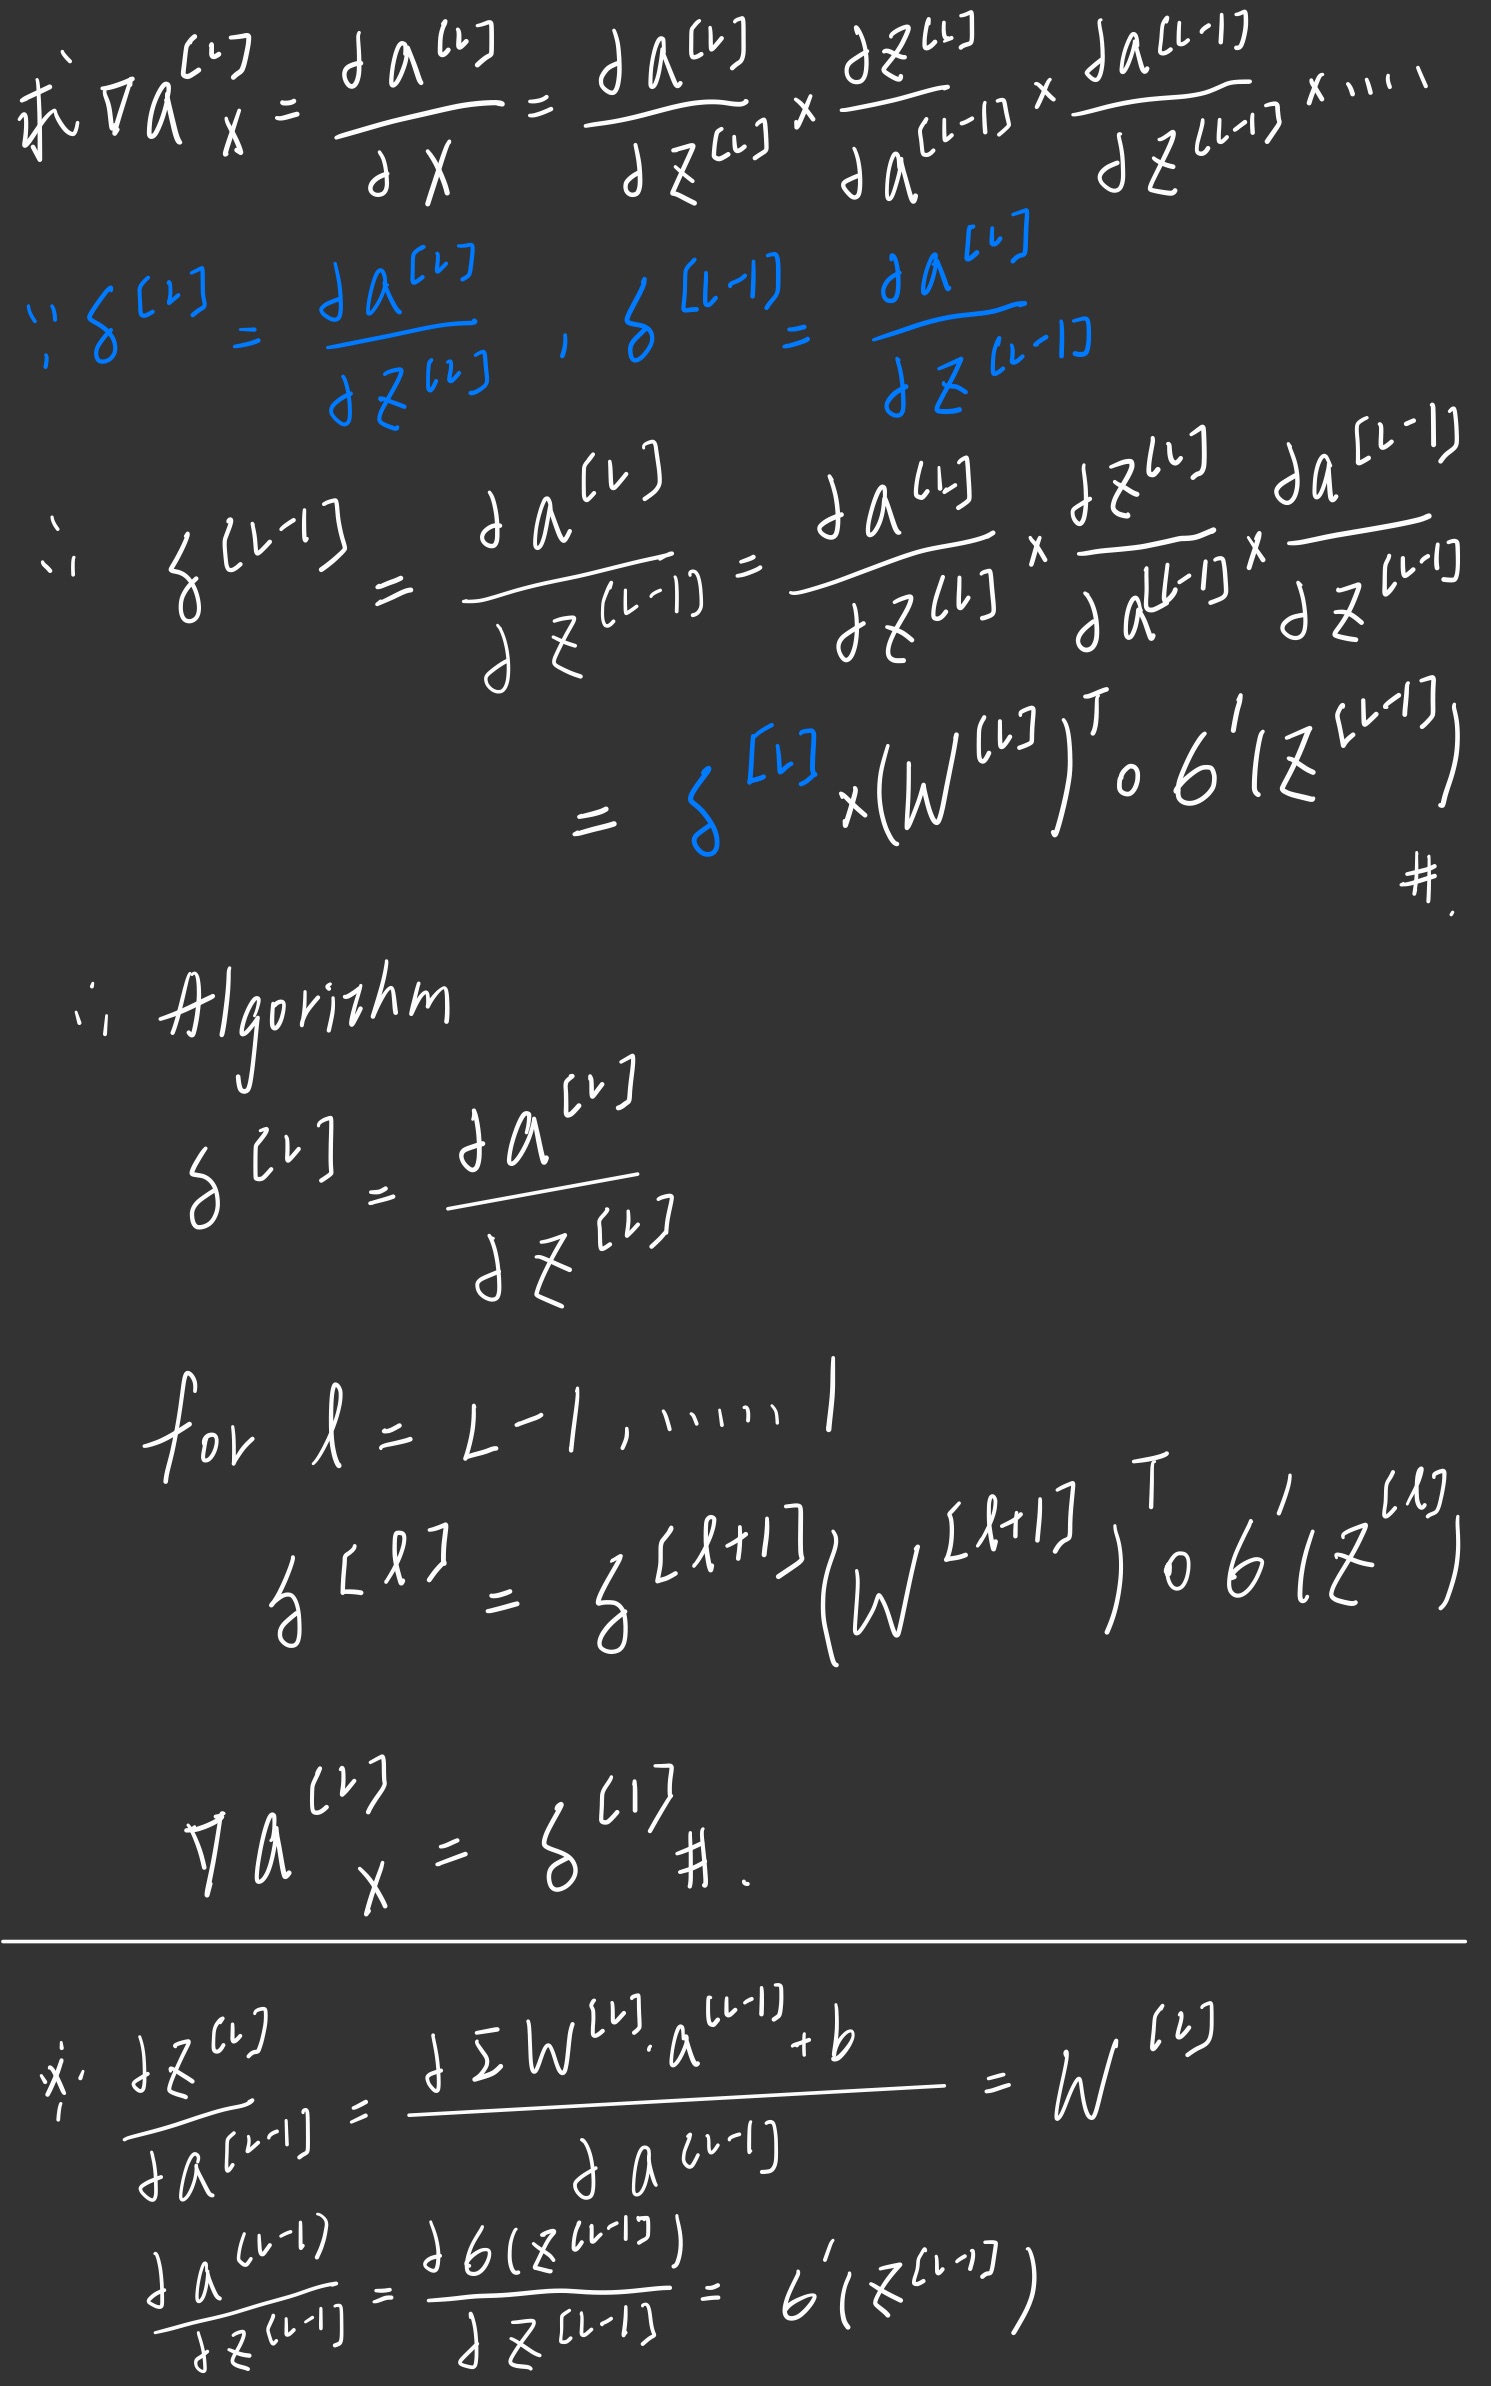 求 ∇a^[L]_x = ∂a^[L]/∂x = ∂a^[L]/∂z^[L] × ∂z^[L]/∂a^[L-1] × ∂a^[L-1]/∂z^[L-1] × ....
∵ δ^[L] = ∂a^[L]/∂z^[L] , δ^[L-1] = ∂a^[L]/∂z^[L-1]
∴ δ^[L-1] = ∂a^[L]/∂z^[L-1] = ∂a^[L]/∂z^[L] × ∂z^[L]/∂a^[L-1] × ∂a^[L-1]/∂z^[L-1]
= δ^[L] × (W^[L])^T ∘ σ'(z^[L-1])
#.
∴ Algorithm
δ^[L] = ∂a^[L]/∂z^[L]
for l = L-1, ...... 1
δ^[l] = δ^[l+1] (W^[l+1])^T ∘ σ'(z^[l])
∇a^[L]_x = δ^[1] #.
※ ∂z^[L]/∂a^[L-1] = ∂ΣW^[L]·a^[L-1]+b/∂a^[L-1] = W^[L]
∂a^[L-1]/∂z^[L-1] = ∂σ(z^[L-1])/∂z^[L-1] = σ'(z^[L-1])